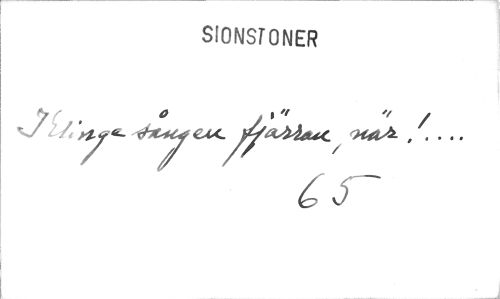 SIONSTONER
Klinge sången fjärran, när!....
65